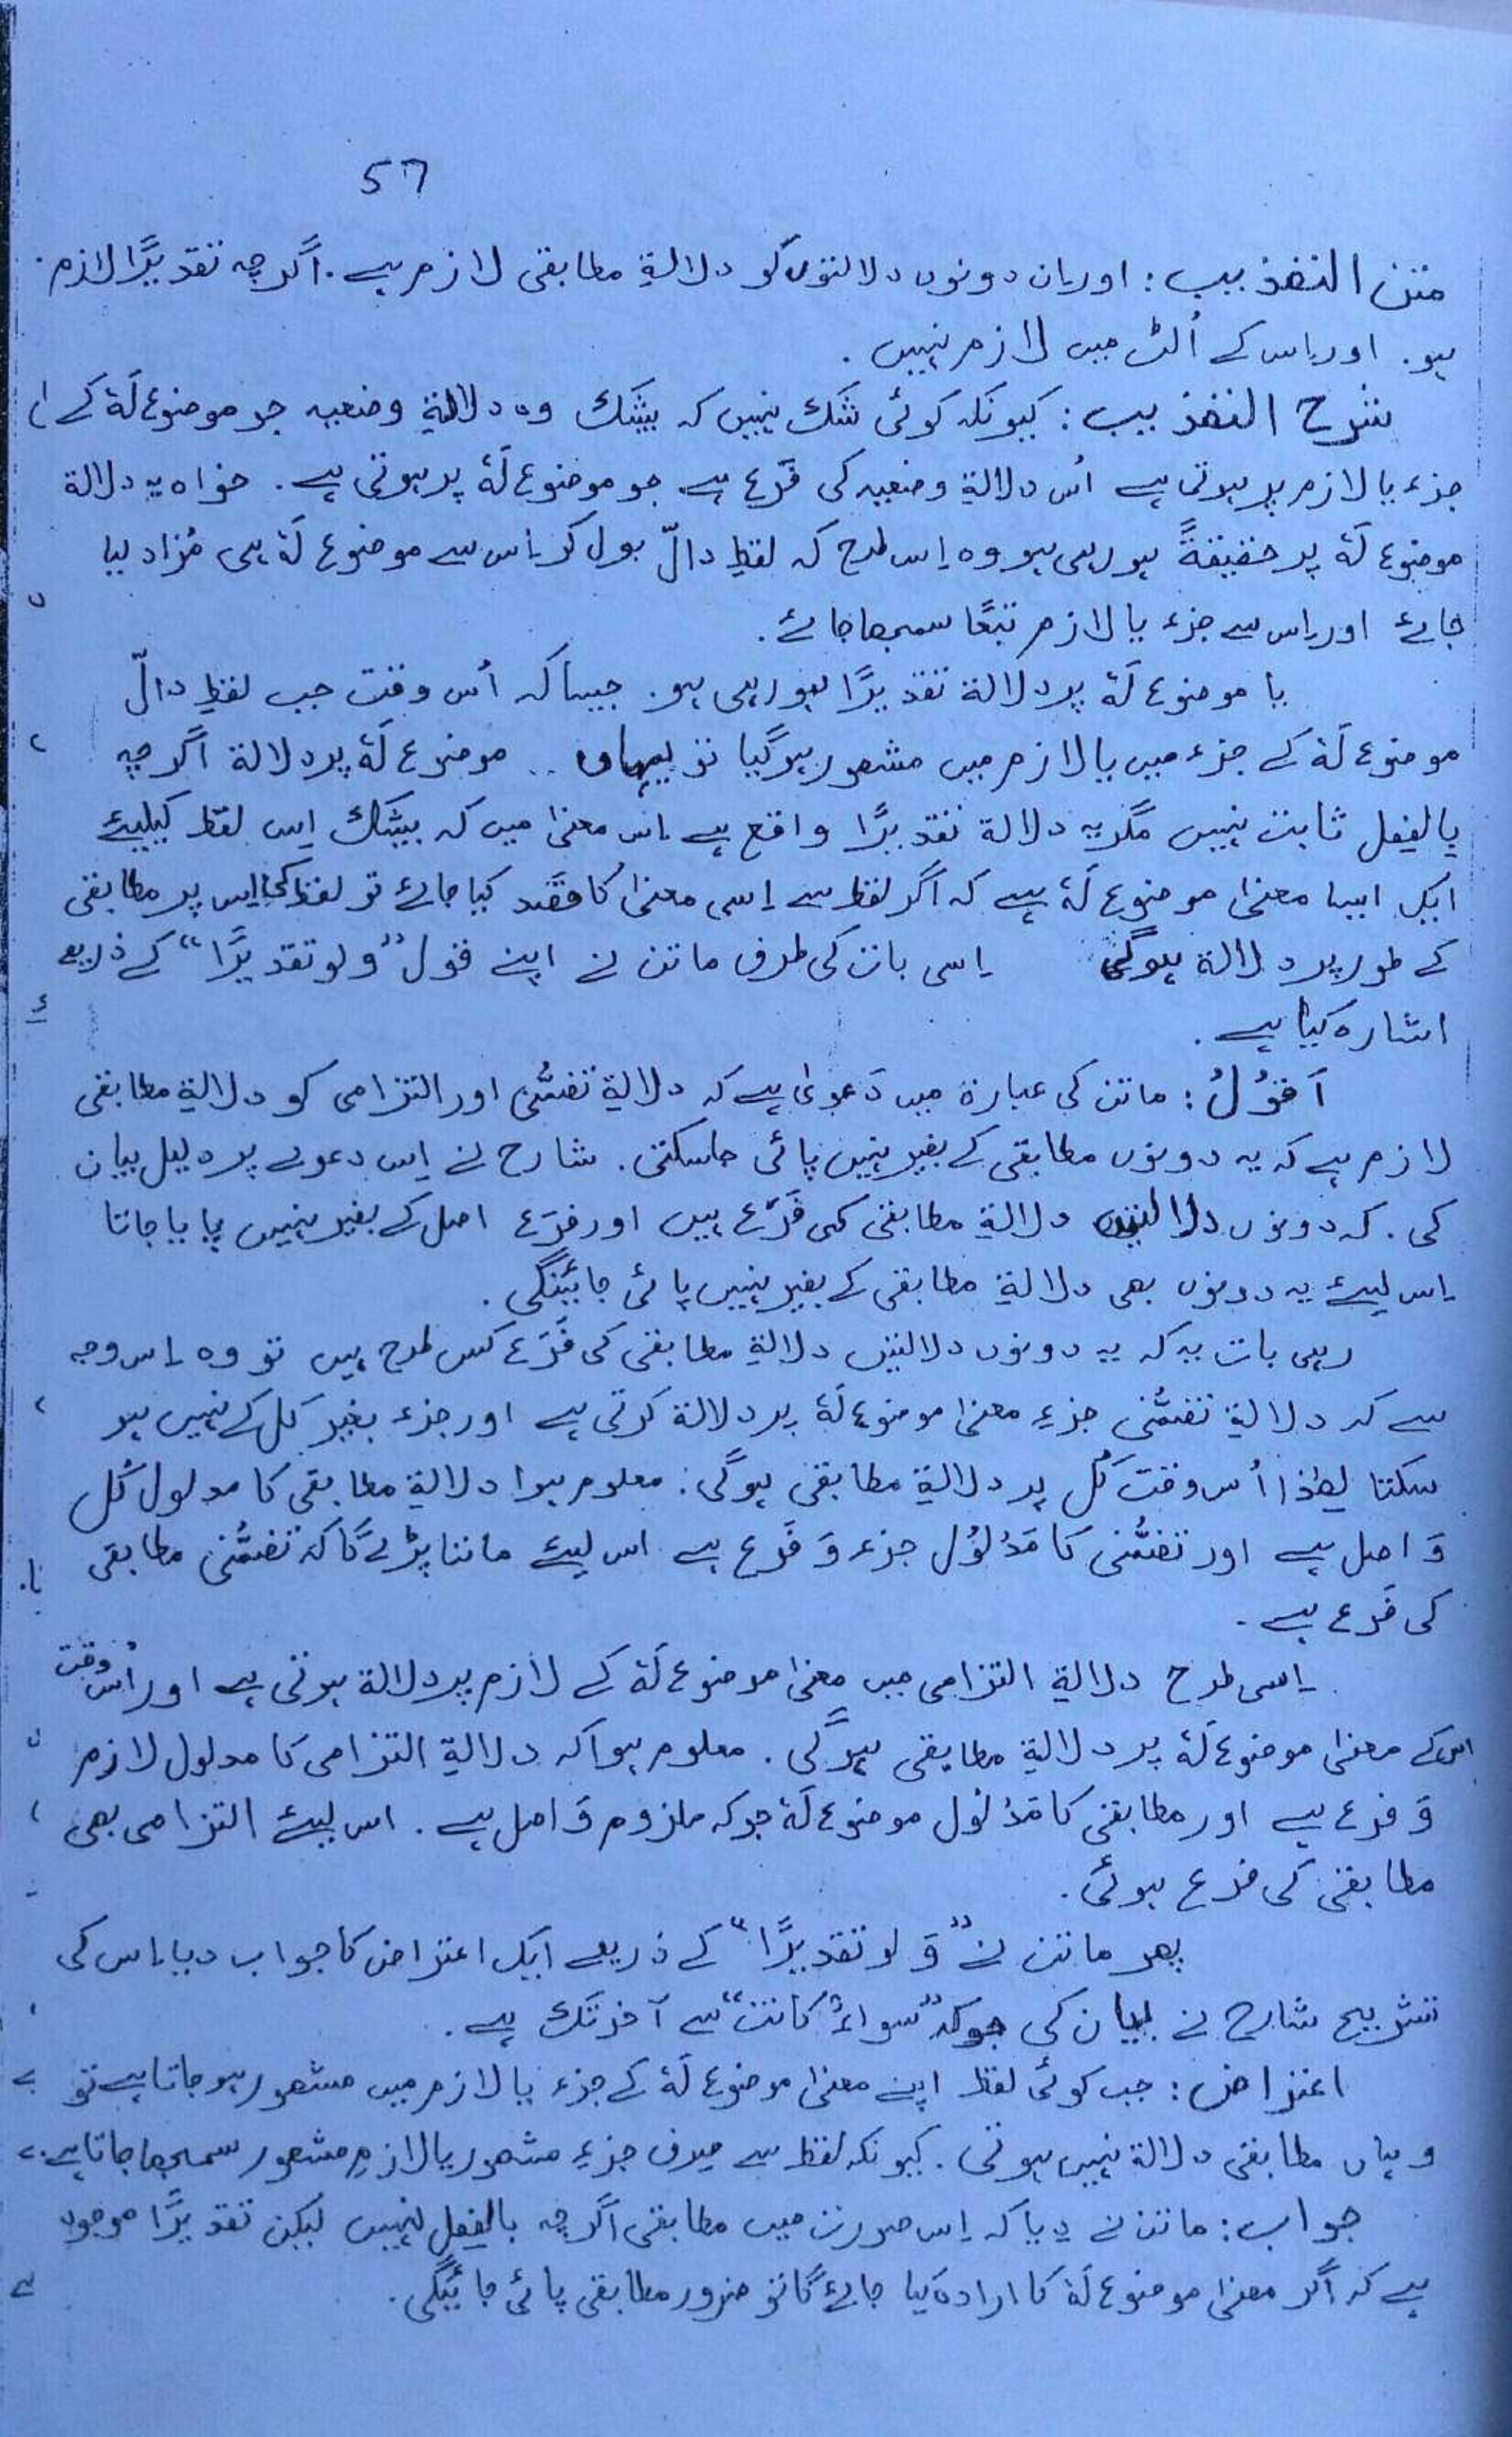 57
متن التھذیب : اور اِن دونوں دلالتوں کو دلالۃِ مطابقی لازم ہے . اگرچہ تقدیرًا لازم
ہو . اور اِس کے اُلٹ میں لازم نہیں .
شرح التھذیب : کیونکہ کوئی شک نہیں کہ بیشک وہ دلالۃِ وضعیہ جو موضوع لَہٗ کے
جزء یا لازم پر ہوتی ہے اُس دلالۃِ وضعیہ کی فَرْع ہے جو موضوع لَہٗ پر ہوتی ہے . خواہ یہ دلالۃ
موضوع لَہٗ پر حقیقۃً ہو رہی ہو وہ اِس طرح کہ لفظِ دالّ بول کر اِس سے موضوع لَہٗ ہی مُراد لیا
جائے اور اِس سے جزء یا لازم تبعًا سمجھا جائے .
یا موضوع لَہٗ پر دلالۃ تقدیرًا ہو رہی ہو . جیسا کہ اُس وقت جب لفظِ دالّ
موضوع لَہٗ کے جزء میں یا لازم میں مشھور ہو گیا تو یہاں موضوع لَہٗ پر دلالۃ اگرچہ
بالفعل ثابت نہیں مگر یہ دلالۃ تقدیرًا واقع ہے اِس معنٰی میں کہ بیشک اِس لفظ کیلیئے
ایک ایسا معنٰی موضوع لَہٗ ہے کہ اگر لفظ سے اِسی معنٰی کا قصد کیا جائے تو لفظ کی اِس پر مطابقی
کے طور پر دلالۃ ہوگی اِسی بات کی طرف ماتن نے اپنے قول ”ولو تقدیرًا“ کے ذریعے
اشارہ کیا ہے .
اَقُوْلُ : ماتن کی عبارۃ میں دَعوٰی ہے کہ دلالۃِ تضمُّنی اور التزامی کو دلالۃِ مطابقی
لازم ہے کہ یہ دونوں مطابقی کے بغیر نہیں پائی جاسکتی . شارح نے اِس دعوے پر دلیل بیان
کی . کہ دونوں دلالتیں دلالۃِ مطابقی کی فَرْع ہیں اور فرَع اصل کے بغیر نہیں پایا جاتا
اِس لیئے یہ دونوں بھی دلالۃِ مطابقی کے بغیر نہیں پائی جائینگی .
رہی بات یہ کہ یہ دونوں دلالتیں دلالۃِ مطابقی کی فَرَع کس طرح ہیں تو وہ اِس وجہ
سے کہ دلالۃِ تضمُّنی جزءِ معنٰی موضوع لَہٗ پر دلالۃ کرتی ہے اور جزء بغیر کل کے نہیں ہو
سکتا لھٰذا اُس وقت کُل پر دلالۃِ مطابقی ہوگی : معلوم ہوا دلالۃِ مطابقی کا مدلول کُل
وَ اصل ہے اور تضمُّنی کا مَدْلُوْل جزء وَ فَرَع ہے اس لیئے ماننا پڑے گا کہ تضمُّنی مطابقی
کی فَرع ہے -
اِسی طرح دلالۃِ التزامی میں معنٰی موضوع لَہٗ کے لازم پر دلالۃ ہوتی ہے اور اُس وقت
اس کے معنٰی موضوع لَہٗ پر دلالۃِ مطابقی ہوگی . معلوم ہوا کہ دلالۃِ التزامی کا مدلول لازم
وَ فرع ہے اور مطابقی کا مَدْلُول موضوع لَہٗ جو کہ ملزوم وَ اصل ہے . اس لیئے التزامی بھی
مطابقی کی فرع ہوئی .
پھر ماتن نے ”وَ لو تقدیرًا“ کے ذریعے ایک اعتراض کا جواب دیا اِس کی
تشریح شارح نے بیان کی جو کہ ”سواءٌ کانت“ سے آخر تک ہے .
اعتراض : جب کوئی لفظ اپنے معنٰی موضوع لَہٗ کے جزء یا لازم میں مشھور ہو جاتا ہے تو
وہاں مطابقی دلالۃ نہیں ہوتی . کیونکہ لفظ سے صرف جزءِ مشھور یا لازمِ مشھور سمجھا جاتا ہے .
جواب : ماتن نے دیا کہ اِس صورت میں مطابقی اگرچہ بالفعل نہیں لیکن تقدیرًا موجود
ہے کہ اگر معنٰی موضوع لَہٗ کا ارادہ کیا جائے گا تو ضرور مطابقی پائی جائیگی .